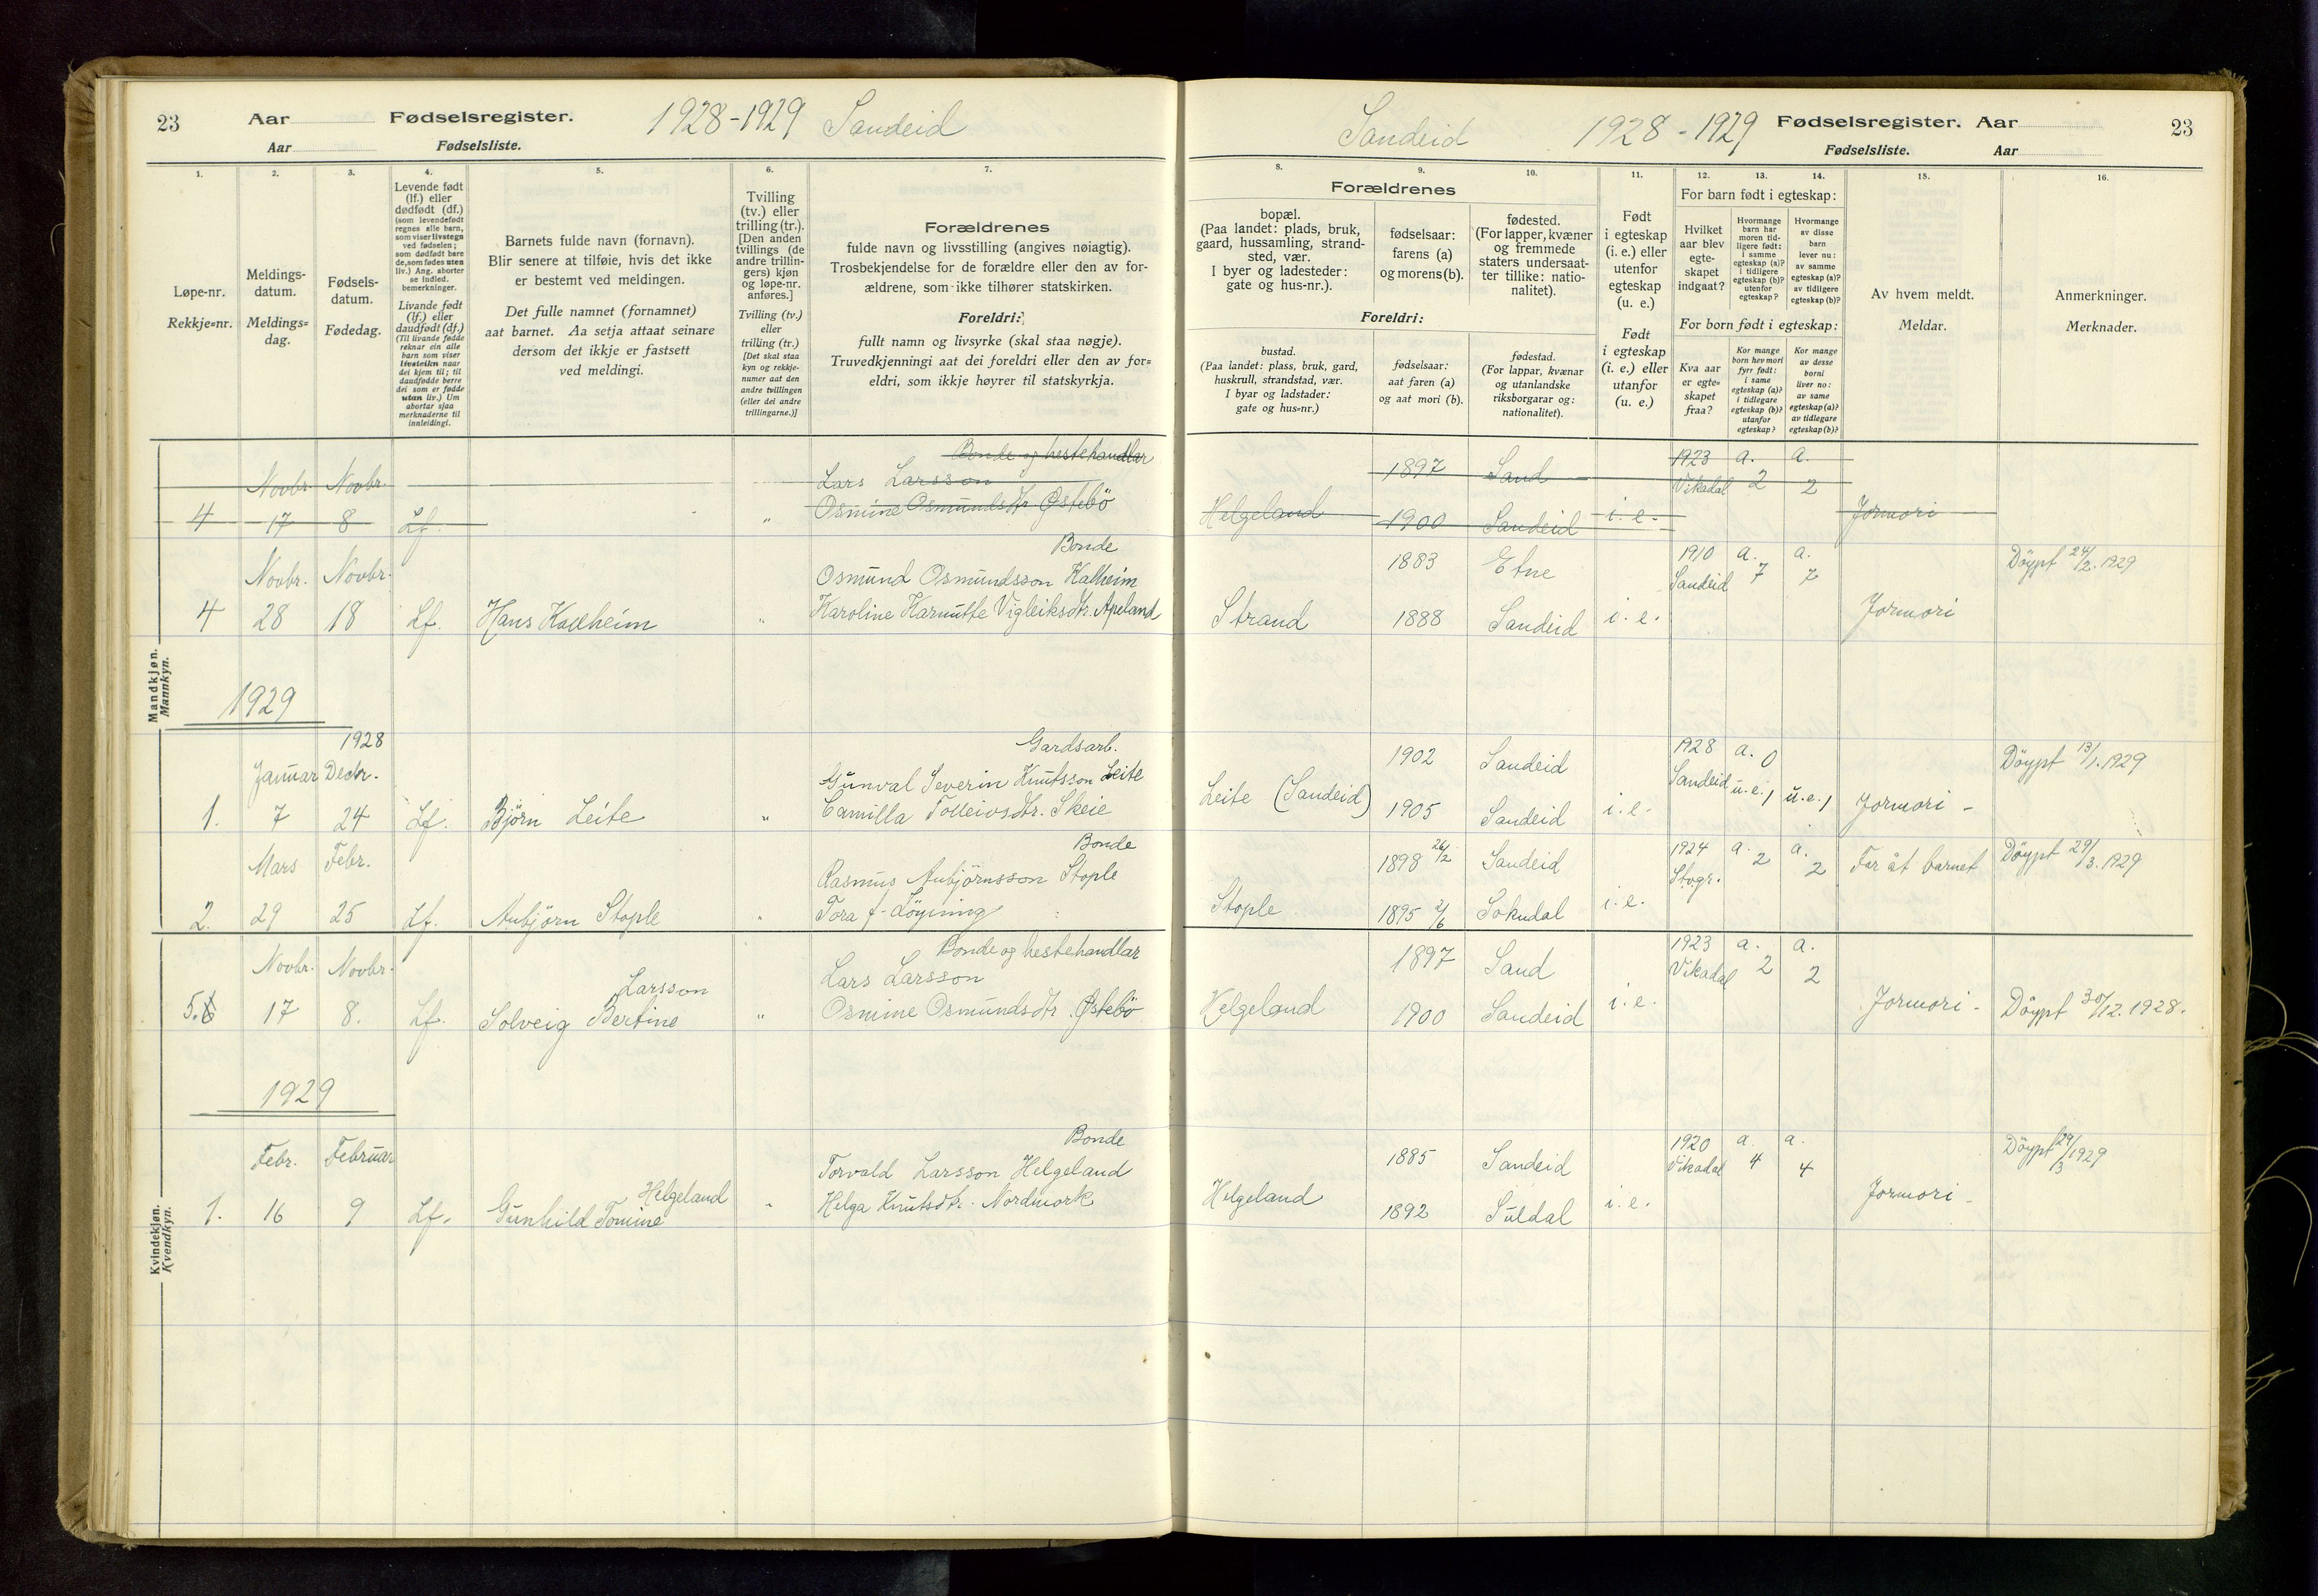 23 Aar Fødselsregister. 1928-1929 Sandeid
Aar Fødselsliste.
1. 2. 3. 4. 5. 6. 7.
Løpe-nr.
Rekkje=nr.
Meldings-
datum.
Meldings=
dag.
Fødsels-
datum.
Fødedag.
Levende født
(lf.) eller
dødfødt (df.)
(som levendefødt
regnes alle barn,
som viser livstegn
ved fødselen;
som dødfødt bare
de, som fødes uten
liv.) Ang. aborter
se indled.
bemerkninger.
Livande født
(lf.) eller
daudfødt (df.)
(Til livande fødde
reknar ein alle
barn som viser
livsteikn naar
dei kjem til; til
daudfødde berre
dei som er fødde
utan liv.) Um
abortar sjaa
merknaderne til
innleidingi.
Barnets fulde navn (fornavn).
Blir senere at tilføie, hvis det ikke
er bestemt ved meldingen.
Det fulle namnet (fornamnet)
aat barnet. Aa setja attaat seinare
dersom det ikkje er fastsett
ved meldingi.
Tvilling
(tv.) eller
trilling (tr.).
[Den anden
tvillings (de
andre trillin-
gers) kjøn
og løpe-nr.
anføres.]
Tvilling (tv.)
eller
trilling (tr.)
[Det skal staa
kyn og rekkje-
numer aat den
andre tvillingen
(eller dei andre
trillingarne.)]
Forældrenes
fulde navn og livsstilling (angives nøiagtig).
Trosbekjendelse for de forældre eller den av for-
ældrene, som ikke tilhører statskirken.
Foreldri:
fullt namn og livsyrke (skal staa nøgje).
Truvedkjenningi aat dei foreldri eller den av for=
eldri, som ikkje høyrer til statskyrkja.
Mandkjøn.
Mannkyn.
Bonde og hestehandlar
Novbr. Novbr. Lars Larsson
4 17 8 Lf. " Osmine Osmundsdtr Østebö
Bonde
Novbr. Novbr. Osmund Osmundsson Kalheim
4 28 18 Lf. Hans Kallheim " Karoline Vigleiksdtr. Apeland
1929
1928
Gardsarb.
Januar Decbr. Gunval Severin Knutsson Leite
1. 7 24 Lf. Björn Leite " Camilla Tolleivsdtr. Skeie
Bonde
Mars Febr. Rasmus Aubjörnsson Stople
2. 29 25 Lf. Aubjörn Stople " Tora f. Löyning
Kvindekjøn.
Kvendkyn.
Bonde og hestehandlar
Novbr. Novbr. Larsson Lars Larsson
5. 6 17 8. Lf. Solveig Bertine " Osmine Osmundsdtr. Østebö
1929
Bonde
Febr. Februar Helgeland Torvald Larsson Helgeland
1. 16 9 Lf. Gunhild Tomine " Helga Knutsdtr. Nordmork
Sandeid 1928-1929 Fødselsregister. Aar 23
Fødselsliste. Aar
8. 9. 10. 11. 12. 13. 14. 15. 16.
Forældrenes
bopæl.
(Paa landet: plads, bruk,
gaard, hussamling, strand-
sted, vær.
I byer og ladesteder:
gate og hus-nr.).
fødselsaar:
farens (a)
og morens (b).
fødested.
(For lapper, kvæner
og fremmede
staters undersaat-
ter tillike: natio-
nalitet).
Foreldri:
bustad.
(Paa landet: plass, bruk, gard,
huskrull, strandstad, vær.
I byar og ladstader:
gate og hus=nr.)
fødselsaar:
aat faren (a)
og aat mori (b).
fødestad.
(For lappar, kvænar
og utanlandske
riksborgarar og:
nationalitet).
Født
i egteskap
(i. e.) eller
utenfor
egteskap
(u. e.)
Født
i egteskap
(i. e.) eller
utanfor
(u. e.)
For barn født i egteskap:
Hvilket
aar blev
egte-
skapet
indgaat?
Hvormange
barn har
moren tid-
ligere født:
i samme
egteskap (a)?
i tidligere
egteskap (b)?
utenfor
egteskap?
Hvormange
av disse
barn
lever nu:
av samme
egteskap (a)?
av tidligere
egteskap (b)?
For born født i egteskap:
Kva aar
er egte=
skapet
fraa?
Kor mange
born hev mori
fyrr født:
i same
egteskap (a)?
i tidlegare
egteskap (b)?
utanfor
egteskap?
Kor mange
av desse
borni
liver no:
av same
egteskap (a)?
av tidlegare
egteskap (b)?
Av hvem meldt.
Meldar.
Anmerkninger.
Merknader.
1897 Sand 1923 a. a.
Vikadal 2 2
Helgeland 1900 Sandeid i. e. Jormori
1883 Etne 1910 a. a. Döypt 24/2. 1929
Sandeid 7 7
Strand 1888 Sandeid i. e. Jormori
1902 Sandeid 1928 a. 0 Döypt 13/1. 1929
Leite (Sandeid) Sandeid u.e. 1 u.e. 1
1905 Sandeid i. e. Jormori -
1898 26/2 Sandeid 1924 a. 2 a. 2 Far åt barnet Döypt 29/3. 1929
Stople 1895 Sokndal i. e.
1897 Sand 1923 a. a.
Vikadal 2 2
Helgeland 1900 Sandeid i. e. Jormori - Döypt 30/12. 1928.
1885 Sandeid 1920 a. a. Döypt 29/3 1929
Vikadal 4 4
Helgeland 1892 Suldal i. e. Jormori -